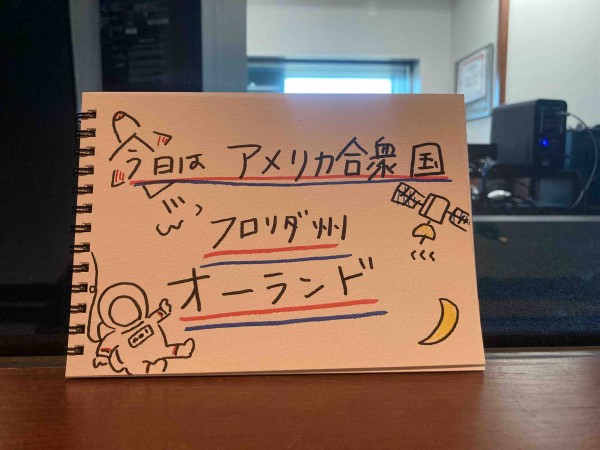 今日は アメリカ合衆国
フロリダ州
オーランド